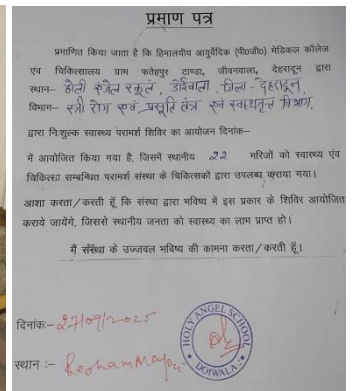 प्रमाण पत्र
प्रमाणित किया जाता है कि हिमालयीय आयुर्वेदिक (पी०जी०) मेडिकल कॉलेज
एंव चिकित्सालय ग्राम फतेहपुर टाण्डा, जीवनवाला, देहरादून द्वारा
स्थान– होली एंजेल स्कूल, डोईवाला, जिला- देहरादून,
विभाग– स्त्री रोग एवं प्रसूति तंत्र एवं स्वस्थवृत्त विभाग,
द्वारा निःशुल्क स्वास्थ्य परामर्श शिविर का आयोजन दिनांक–
में आयोजित किया गया है, जिसमें स्थानीय 22 मरिजों को स्वास्थ्य एंव
चिकित्सा सम्बन्धित परामर्श संस्था के चिकित्सकों द्वारा उपलब्ध कराया गया।
आशा करता/करती हूँ कि संस्था द्वारा भविष्य में इस प्रकार के शिविर आयोजित
कराये जायेंगे, जिससे स्थानीय जनता को स्वास्थ्य का लाभ प्राप्त हो।
मैं संस्था के उज्जवल भविष्य की कामना करता/करती हूँ।
दिनांक:– 27/09/2025
स्थान :–
HOLY ANGEL SCHOOL
DOIWALA